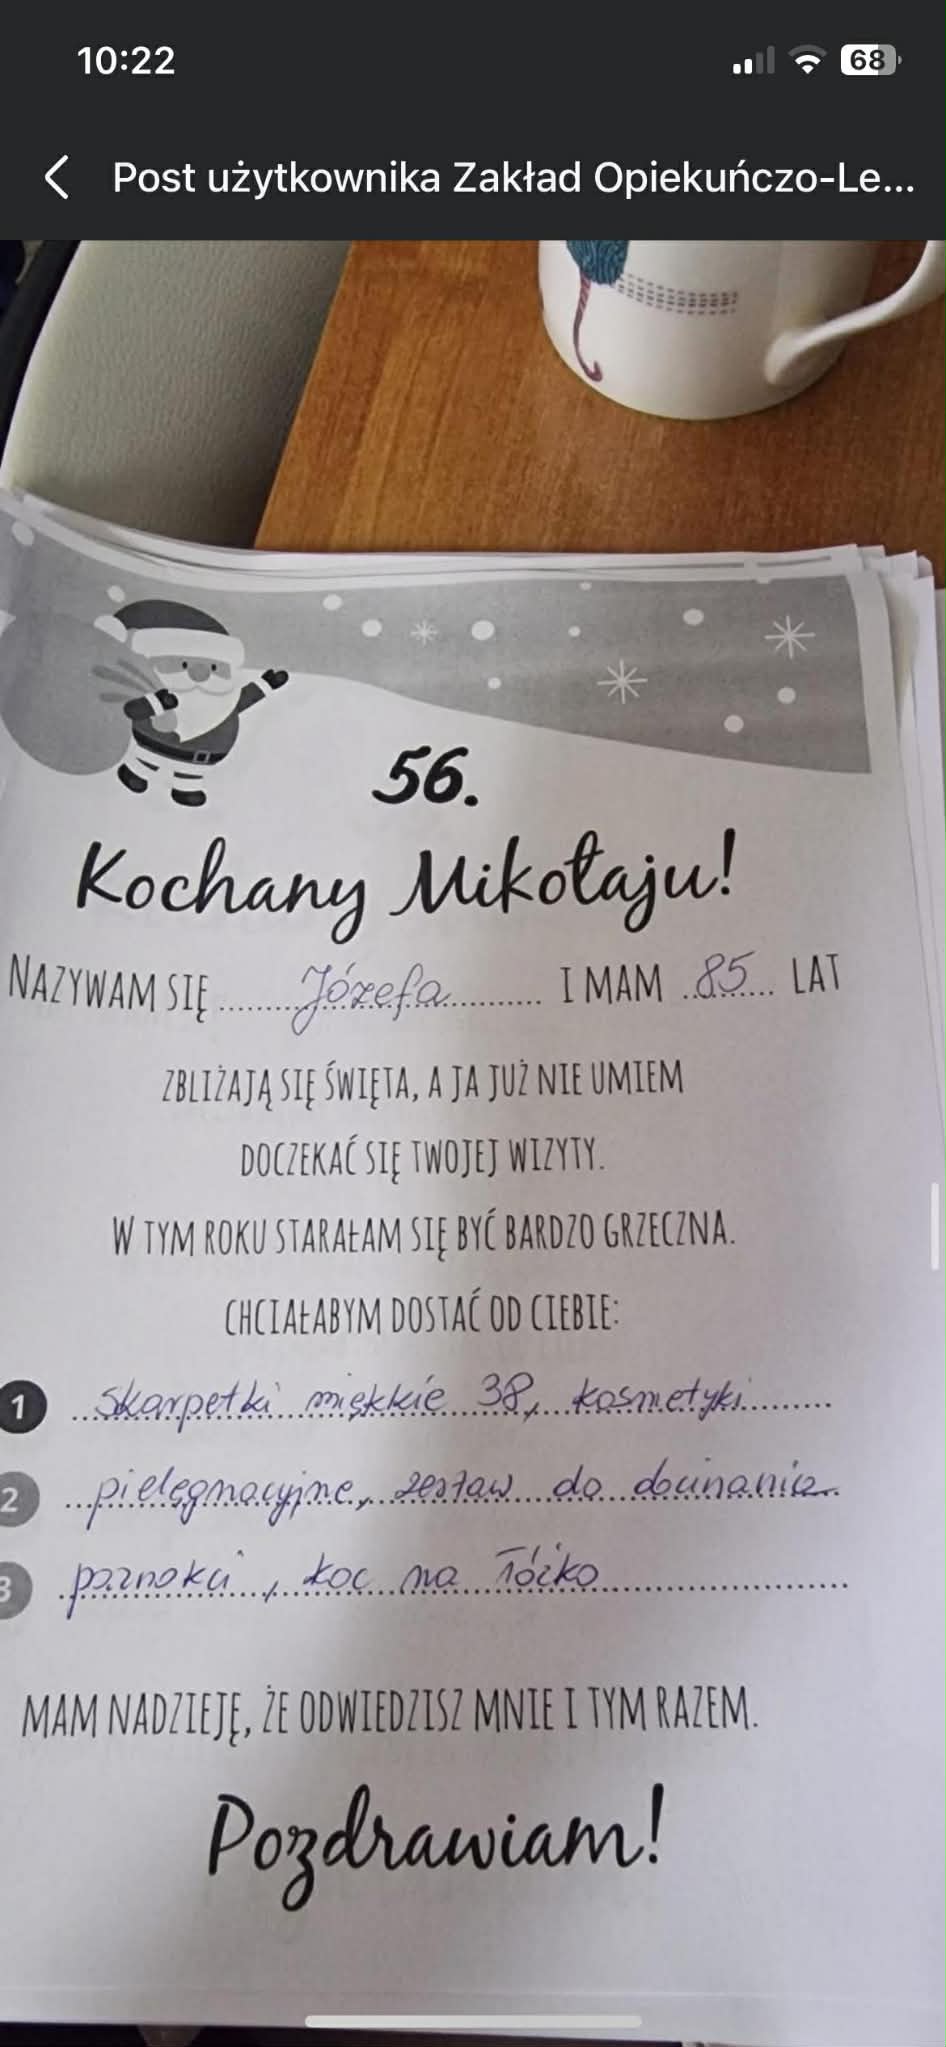 10:22
68
Post użytkownika Zakład Opiekuńczo-Le...
56.
Kochany Mikołaju!
NAZYWAM SIĘ ........ Józefa ........ I MAM .. 85 ... LAT
ZBLIŻAJĄ SIĘ ŚWIĘTA, A JA JUŻ NIE UMIEM
DOCZEKAĆ SIĘ TWOJEJ WIZYTY.
W TYM ROKU STARAŁAM SIĘ BYĆ BARDZO GRZECZNA.
CHCIAŁABYM DOSTAĆ OD CIEBIE:
1 skarpetki miękkie 38, kosmetyki
2 pielęgnacyjne, zestaw do docinania
3 paznokci, koc na łóżko
MAM NADZIEJĘ, ŻE ODWIEDZISZ MNIE I TYM RAZEM.
Pozdrawiam!